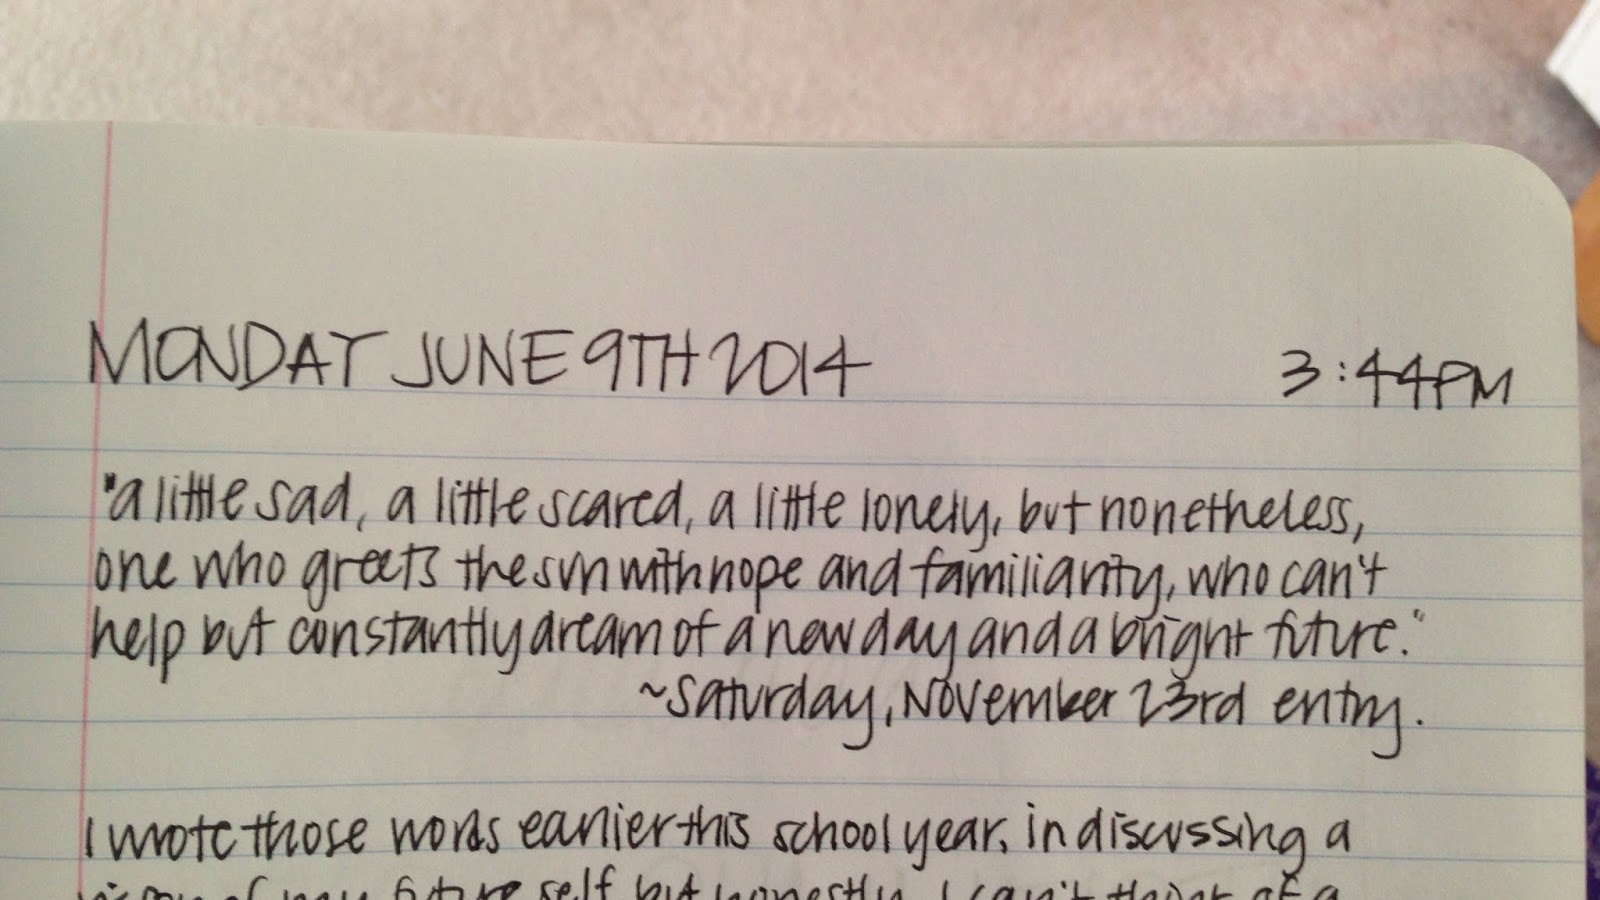 MONDAY JUNE 9TH 2014 3:44PM
"a little sad, a little scared, a little lonely, but nonetheless,
one who greets the sun with hope and familiarity, who can't
help but constantly dream of a new day and a bright future."
~Saturday, November 23rd entry.
I wrote those words earlier this school year, in discussing a
vision of my future self, but honestly, I can't think of a